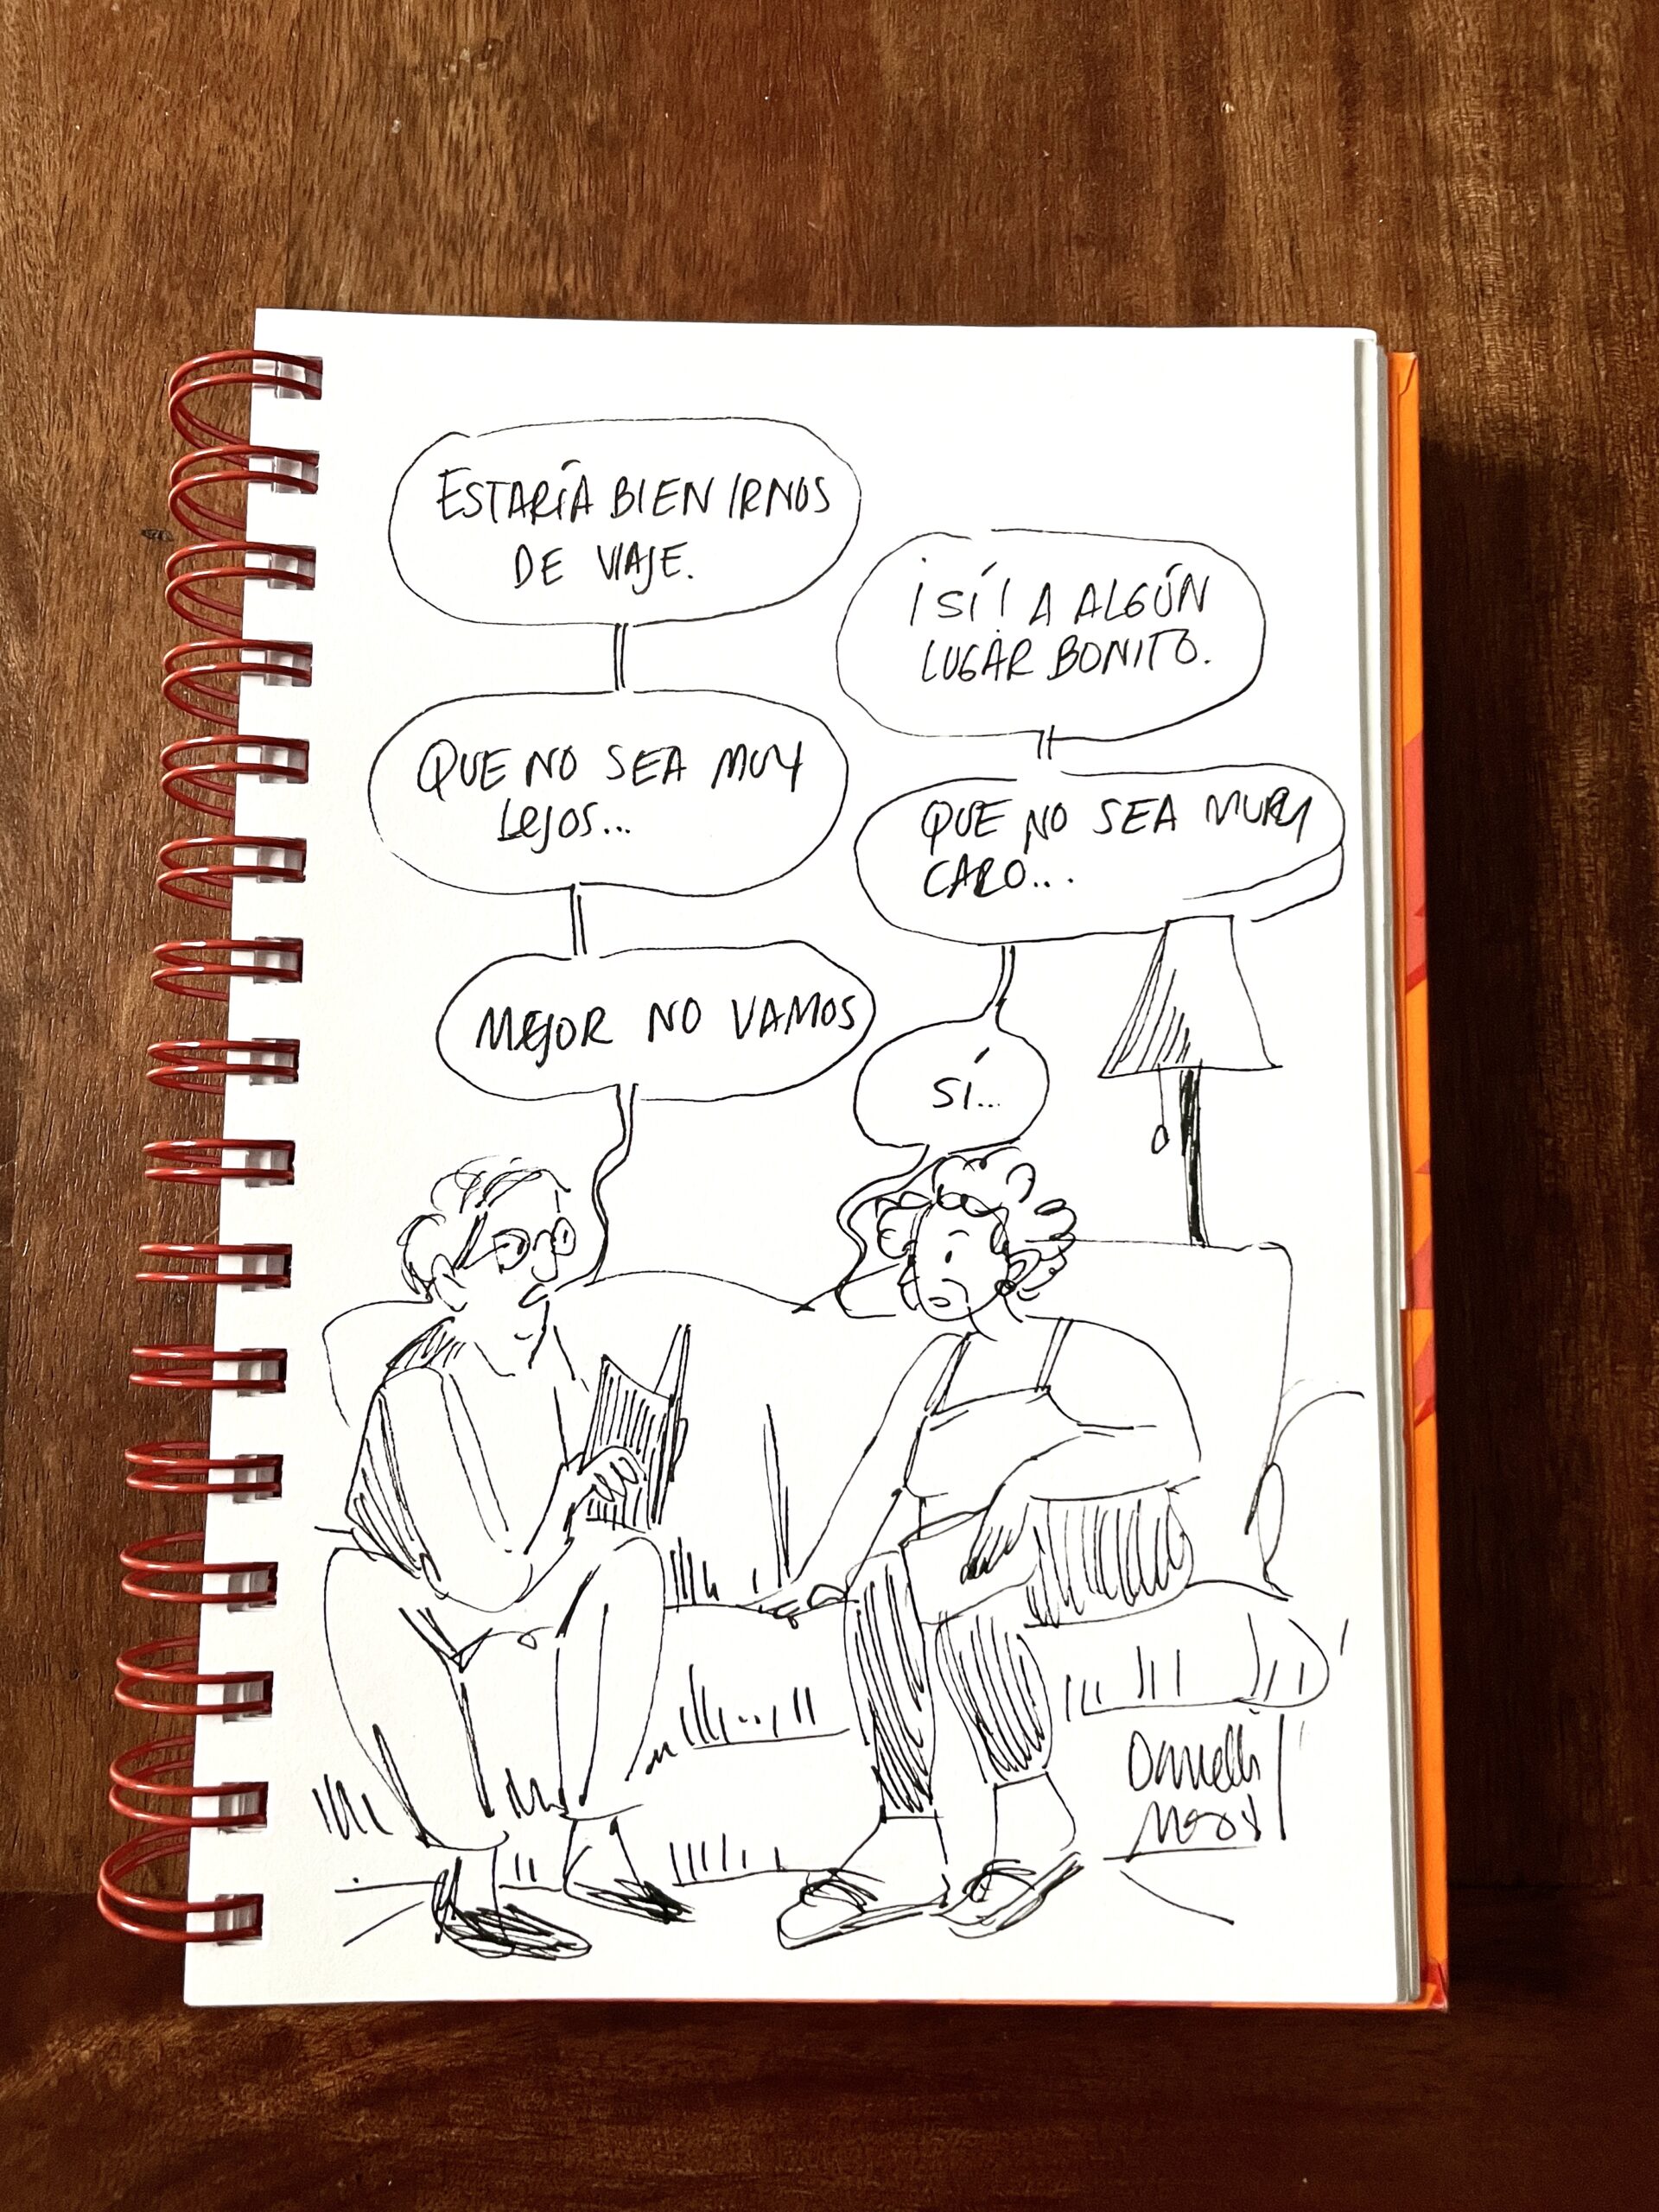 ESTARÍA BIEN IRNOS
DE VIAJE.
¡SÍ! A ALGÚN
LUGAR BONITO.
QUE NO SEA MUY
LEJOS...
QUE NO SEA MUY
CARO...
MEJOR NO VAMOS
SÍ...